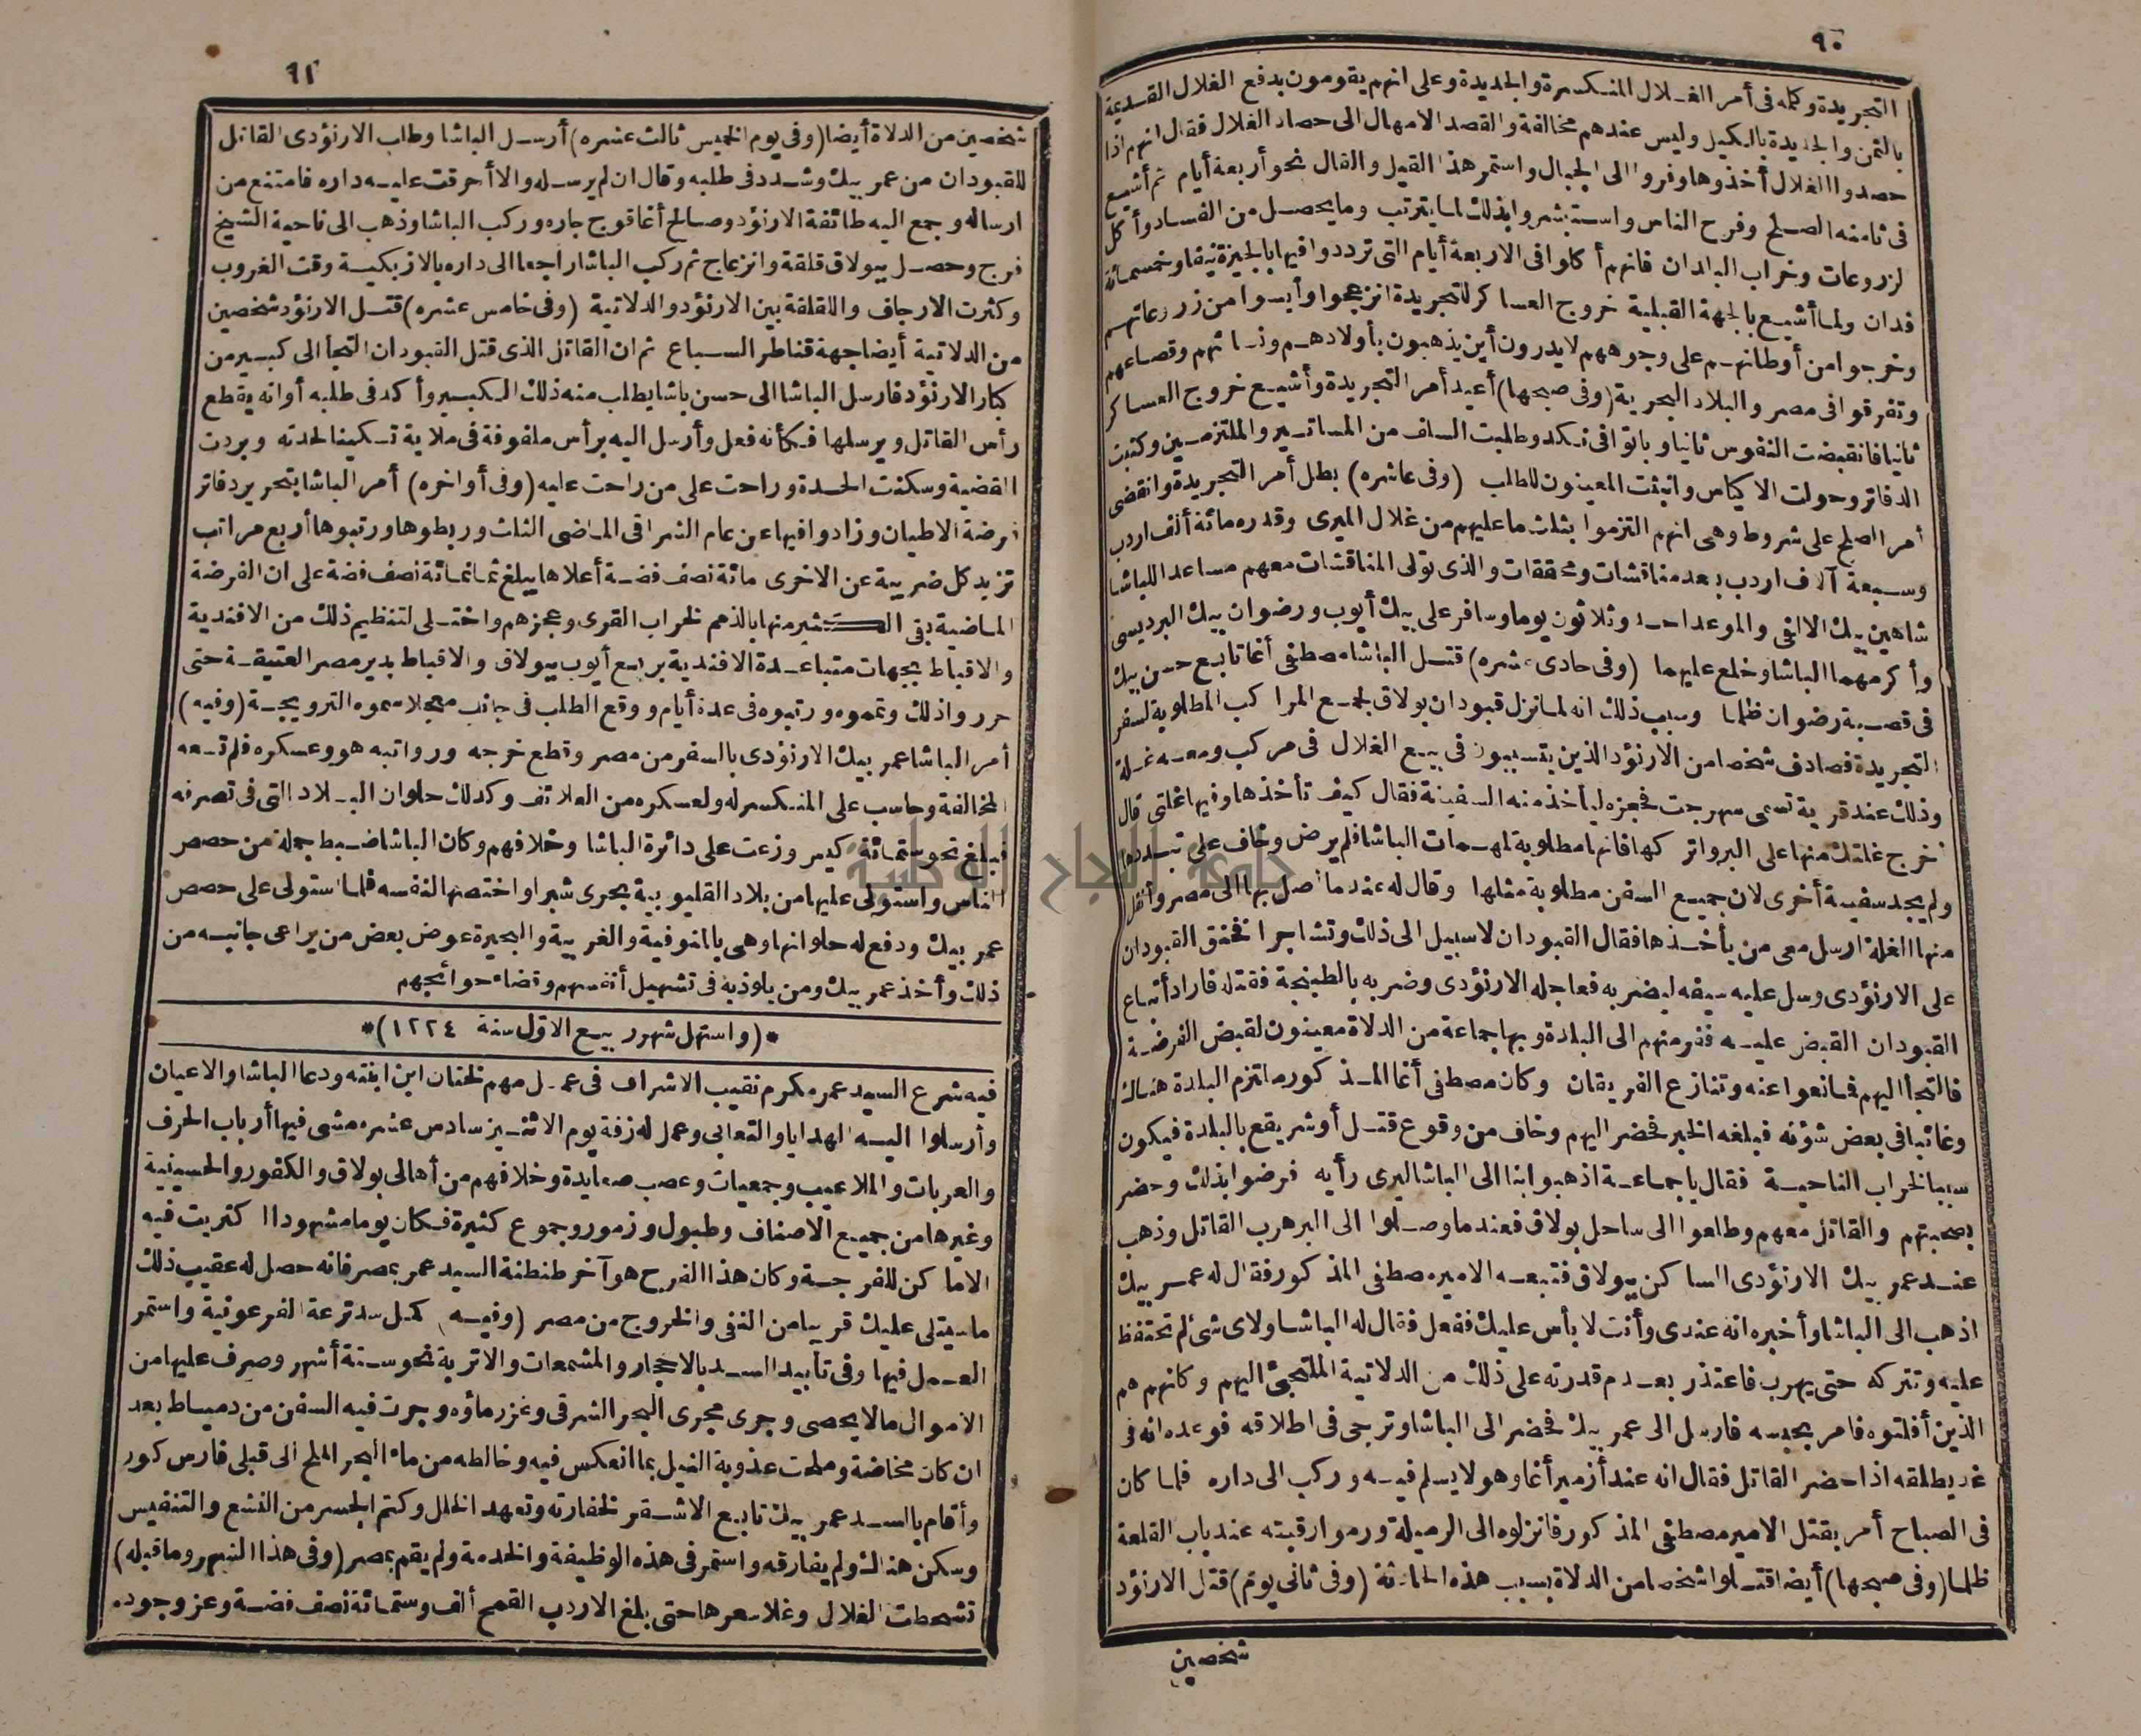 ٩٠
التجريدة وكله فى أمر الغلال المنكسرة والجديدة وعلى انهم يقومون بدفع الغلال القديمة
بالثمن والجديدة بالكيل وليس عندهم مخالفة والقصد الامهال الى حصاد الغلال فقال انهم اذا
حصدوا الغلال أخذوها وفروا الى الجبال واستمر هذا القيل والقال نحو أربعة أيام ثم أشيع
فى ثامنه الصلح وفرح الناس واستبشروا بذلك لما يترتب وما يحصل من الفساد وأكل
لزروعات وخراب البلدان فانهم أكلوا فى الاربعة أيام التى ترددوا فيها بالجيزة نيفا وخمسمائة
فدان ولما أشيع بالجهة القبلية خروج العساكر للتجريدة انزعجوا وأيسوا من زروعاتهم
وخرجوا من أوطانهم على وجوههم لا يدرون أين يذهبون بأولادهم ونسائهم وقصاعهم
وتفرقوا فى مصر والبلاد البحرية (وفى صبحها) أعيد أمر التجريدة وأشيع خروج العساكر
ثانيا فانقبضت النفوس ثانيا وباتوا فى نكد وطلبت السلف من المساتير والملتزمين وكتبت
الدفاتر وحولت الاكياس وانبثت المعينون للطلب (وفى عاشره) بطل أمر التجريدة وانقضى
أمر الصلح على شروط وهى انهم التزموا بثلث ما عليهم من غلال الميرى وقدره مائة ألف اردب
وسبعة آلاف اردب بعد مناقشات ومحققات والذى تولى المناقشات معهم مساعدا للباشا
شاهين بيك الالفى والموعد احد وثلاثون يوما وسافر على بيك أيوب ورضوان بيك البرديسى
وأكرمهما الباشا وخلع عليهما (وفى حادى عشره) قتل الباشا مصطفى أغا تابع حسن بيك
فى قصبة رضوان ظلما وسبب ذلك انه لما نزل قبودان بولاق لجمع المراكب المطلوبة لسفر
التجريدة فصادف شخصا من الارنؤد الذين يتسببون فى بيع الغلال فى مركب ومعه غلة
وذلك عند قرية تسمى سهرجت فحجزه ليأخذ منه السفينة فقال كيف تأخذها وفيها غلتى قال
خرج غلتك منها على البر واتركها فانها مطلوبة لمهمات الباشا فلم يرض وخاف على تبددها
ولم يجد سفينة أخرى لان جميع السفن مطلوبة مثلها وقال له عندما أصل بها الى مصر وأنقل
منها الغلة ارسل معى من يأخذها فقال القبودان لا سبيل الى ذلك وتشاجرا فحنق القبودان
على الارنؤدى وسل عليه سيفه ليضربه فعاجله الارنؤدى وضربه بالطبنجة فقتله فاراد أتباع
القبودان القبض عليه ففر منهم الى البلدة وبها جماعة من الدلاة معينون لقبض الفرضة
فالتجأ اليهم فمانعوا عنه وتنازع الفريقان وكان مصطفى أغا المذكور ملتزم البلدة هناك
وغائبا فى بعض شؤنه فبلغه الخبر فحضر اليهم وخاف من وقوع قتل أو شر يقع بالبلدة فيكون
سببا لخراب الناحية فقال يا جماعة اذهبوا بنا الى الباشا ليرى رأيه فرضوا بذلك وحضر
بصحبتهم والقاتل معهم وطلعوا الى ساحل بولاق فعندما وصلوا الى البر هرب القاتل وذهب
عند عمر بيك الارنؤدى الساكن ببولاق فتبعه الامير مصطفى المذكور فقال له عمر بيك
اذهب الى الباشا وأخبره انه عندى وأنت لا بأس عليك ففعل فقال له الباشا ولاى شئ لم تحتفظ
عليه وتتركه حتى يهرب فاعتذر بعدم قدرته على ذلك من الدلاتية الملتجئ اليهم وكانهم هم
الذين أفلتوه فامر بحبسه فارسل الى عمر بيك فحضر الى الباشا وترجى فى اطلاقه فوعده انه فى
غد يطلقه اذا حضر القاتل فقال انه عند أزمير أغا وهو لا يسلم فيه وركب الى داره فلما كان
فى الصباح أمر بقتل الامير مصطفى المذكور فانزلوه الى الرميلة ورموا رقبته عند باب القلعة
ظلما (وفى صبحها) أيضا قتلوا شخصا من الدلاة بسبب هذه الحادثة (وفى ثانى يوم) قتل الارنؤد
شخصين
٩١
شخصين من الدلاة أيضا (وفى يوم الخميس ثالث عشره) أرسل الباشا وطلب الارنؤدى القاتل
للقبودان من عمر بيك وشدد فى طلبه وقال ان لم يرسله والا أحرقت عليه داره فامتنع من
ارساله وجمع اليه طائفة الارنؤد وصالح أغا قوج جاره وركب الباشا وذهب الى ناحية الشيخ
فرج وحصل ببولاق قلقة وانزعاج ثم ركب الباشا راجعا الى داره بالازبكية وقت الغروب
وكثرت الارجاف والقلقة بين الارنؤد والدلاتية (وفى خامس عشره) قتل الارنؤد شخصين
من الدلاتية أيضا جهة قناطر السباع ثم ان القاتل الذى قتل القبودان التجأ الى كبير من
كبار الارنؤد فارسل الباشا الى حسن باشا يطلب منه ذلك الكبير وأكد فى طلبه أو انه يقطع
رأس القاتل ويرسلها فكأنه فعل وأرسل اليه برأس ملفوفة فى ملاية تسكينا لحدته وبردت
القضية وسكنت الحدة وراحت على من راحت عليه (وفى أواخره) أمر الباشا بتحرير دفاتر
فرضة الاطيان وزادوا فيها عن عام الشراقى الماضى الثلث وربطوها ورتبوها أربع مراتب
تزيد كل ضريبة عن الاخرى مائة نصف فضة أعلاها يبلغ ثمانمائة نصف فضة على ان الفرضة
الماضية بقى الكثير منها بالذمم لخراب القرى وعجزهم واختلى لتنظيم ذلك من الافندية
والاقباط بجهات متباعدة الافندية بربع أيوب ببولاق والاقباط بدير مصر العتيقة حتى
حرروا ذلك وتمموه ورتبوه فى عدة أيام ووقع الطلب فى جانب معجلا سموه الترويجة (وفيه)
أمر الباشا عمر بيك الارنؤدى بالسفر من مصر وقطع خرجه ورواتبه هو وعسكره فلم تسعه
المخالفة وحاسب على المنكسر له ولعسكره من العلائف وكذلك حلوان البلاد التى فى تصرفه
فبلغ نحو ستمائة كيس وزعت على دائرة الباشا وخلافهم وكان الباشا ضبط جملة من حصص
الناس واستولى عليها من بلاد القليوبية بحرى شبرا واختصها لنفسه فلما استولى على حصص
عمر بيك ودفع له حلوانها وهى بالمنوفية والغربية والبحيرة عوض بعض من يراعى جانبه من
ذلك وأخذ عمر بيك ومن يلوذ به فى تشهيل أنفسهم وقضاء حوائجهم
*(واستهل شهر ربيع الاول سنة ١٢٢٤)*
فيه شرع السيد عمر مكرم نقيب الاشراف فى عمل مهم لختان ابن ابنته ودعا الباشا والاعيان
وأرسلوا اليه الهدايا والتعابى وعمل له زفة يوم الاثنين سادس عشره مشى فيها أرباب الحرف
والعربات والملاعيب وجمعيات وعصب صعايدة وخلافهم من أهالى بولاق والكفور والحسينية
وغيرها من جميع الاصناف وطبول وزمور وجموع كثيرة فكان يوما مشهودا اكتريت فيه
الاماكن للفرجة وكان هذا الفرح هو آخر طنطنة السيد عمر بمصر فانه حصل له عقيب ذلك
ما سيتلى عليك قريبا من النفى والخروج من مصر (وفيه) كمل سد ترعة الفرعونية واستمر
العمل فيها وفى تأييد السد بالاحجار والمشمعات والاتربة نحو ستة أشهر وصرف عليها من
الاموال ما لا يحصى وجرى مجرى البحر الشرقى وغزر ماؤه وجرت فيه السفن من دمياط بعد
ان كان مخاضة وملحت عذوبة النيل بما انعكس فيه وخالطه من ماء البحر الملح الى قبلى فارس كور
وأقام بالسد عمر بيك تابع الاشقر لخفارته وتعهد الخلل وكتم الجسر من النشع والتنفيس
وسكن هناك ولم يفارقه واستمر فى هذه الوظيفة والخدمة ولم يقم بمصر (وفى هذا الشهر وما قبله)
تشحطت الغلال وغلا سعرها حتى بلغ الاردب القمح ألف وستمائة نصف فضة وعز وجوده
جامعة النجاح الوطنية